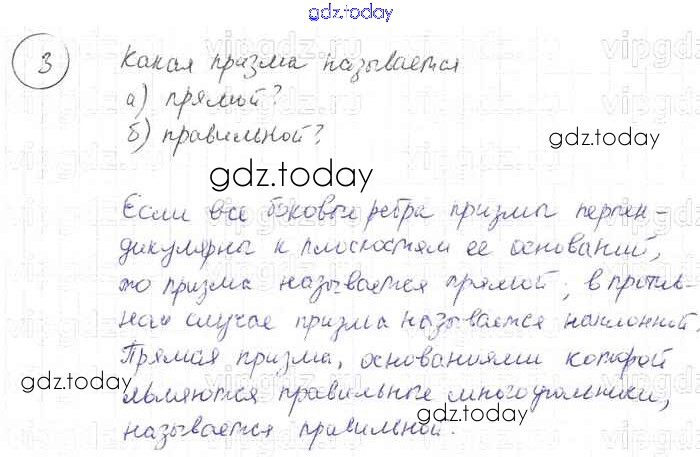 gdz.today
3 Какая призма называется
а) прямой?
б) правильной?
gdz.today
gdz.today
Если все боковые ребра призмы перпен-
дикулярны к плоскостям ее оснований,
то призма называется прямой; в против-
ном случае призма называется наклонной.
Прямая призма, основаниями которой
gdz.today
являются правильные многоугольники,
gdz.today
называется правильной.